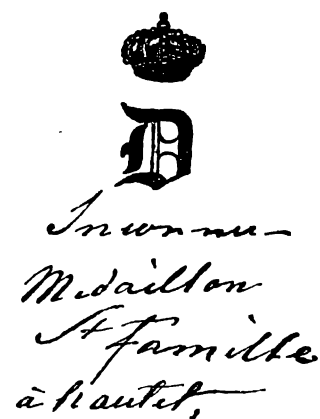 D
Inconnu
Medaillon
St famille
à hautet,